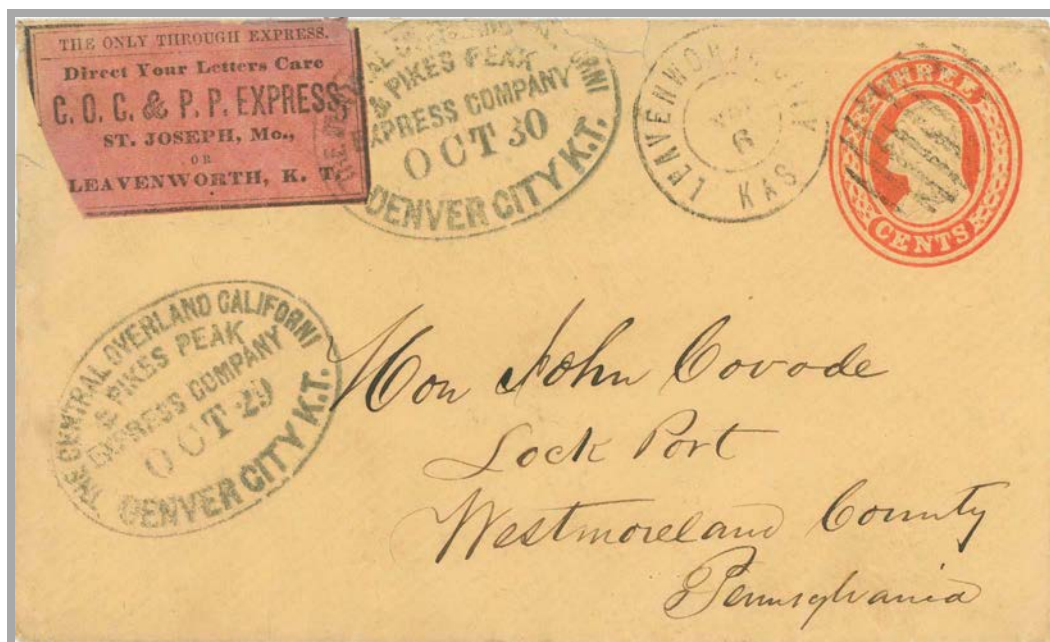 THE ONLY THROUGH EXPRESS.
Direct Your Letters Care
C. O. C. & P. P. EXPRESS,
ST. JOSEPH, Mo.,
OR
LEAVENWORTH, K. T.
& PIKES PEAK
EXPRESS COMPANY
OCT 30
DENVER CITY K.T.
LEAVENWORTH
6
KAS
THREE
CENTS
THE CENTRAL OVERLAND CALIFORNI
& PIKES PEAK
EXPRESS COMPANY
OCT 29
DENVER CITY K.T.
Hon John Covode
Lock Port
Westmoreland County
Pennsylvania